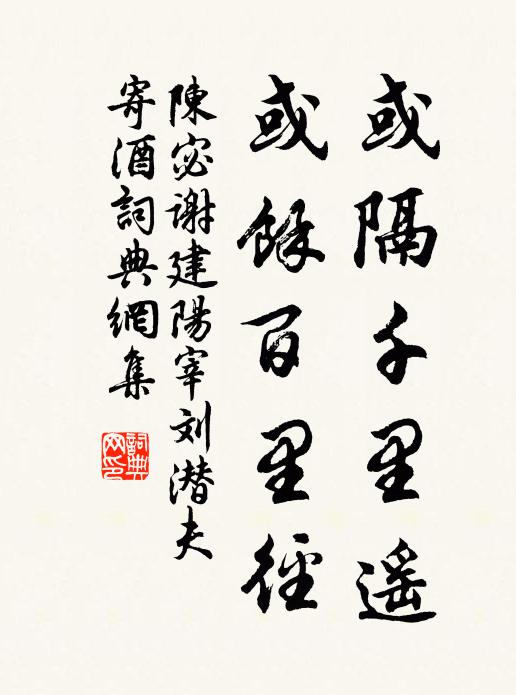 或隔千里遥
或餘百里徑
陳宓謝建陽宰刘潜夫
寄酒詞典網集
詞典网印